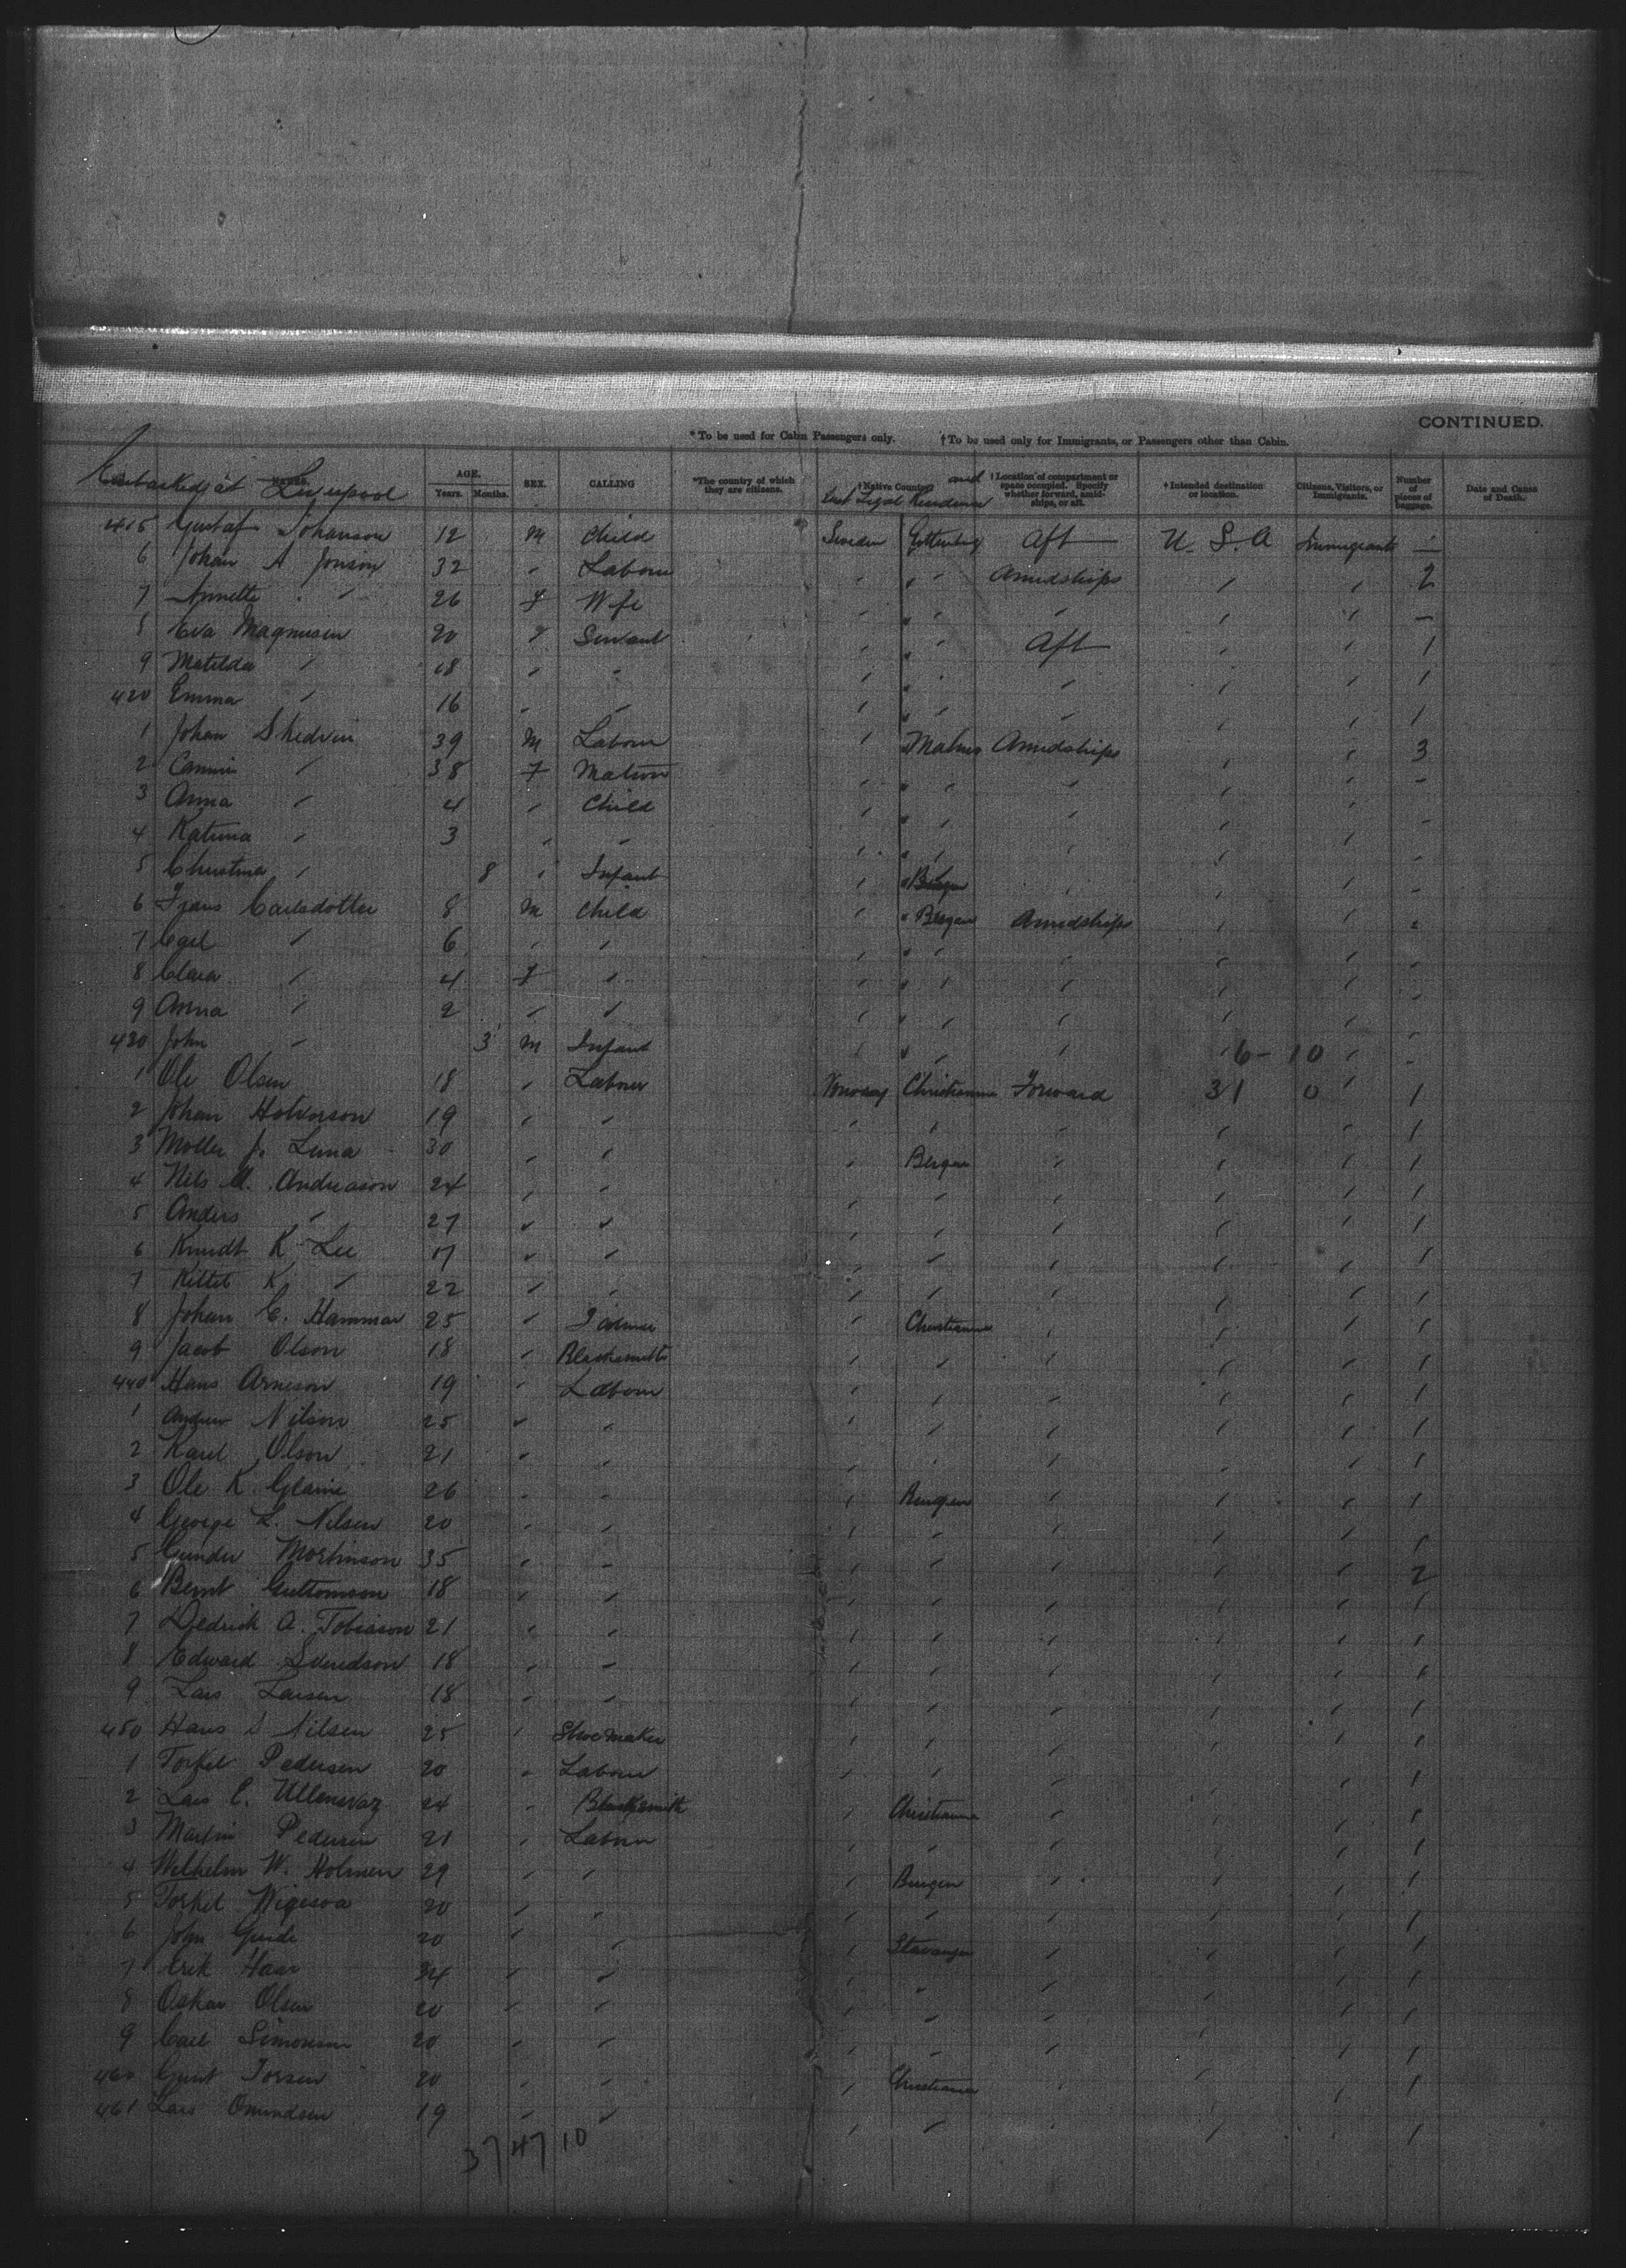 CONTINUED.
* To be used for Cabin Passengers only. † To be used only for Immigrants, or Passengers other than Cabin.
NAMES. AGE. Years. Months. SEX. CALLING *The country of which they are citizens. †Native Country and Last Legal Residence †Location of compartment or space occupied. Specify whether forward, amidships, or aft. †Intended destination or location. Citizens, Visitors, or Immigrants. Number of pieces of baggage. Date and Cause of Death.
Embarked at Liverpool
415 Gustaf Johanson 12 M Child Sweden Gottenbg Aft U.S.A Immigrants —
6 Johan A Jonson 32 " Labour " " " Amidships " " 2
7 Annette " 26 F Wife " " " " " " —
8 Eva Magnusen 20 " Servant " " " Aft " " 1
9 Matilda " 18 " " " " " " " " 1
420 Emma " 16 " " " " " " " " 1
1 Johan Shedvin 39 M Labour " Malmo Amidships " " 3
2 " 38 F Matron " " " " " " -
3 Anna " 4 " Child " " " " " " -
4 Katrina " 3 " " " " " " " " -
5 Christina " 8 " Infant " " Bergen " " " -
6 Frans Carlsdotter 8 M Child " " Bergen Amidships " " -
7 Carl " 6 " " " " " " " " -
8 Clara " 4 F " " " " " " " -
9 Anna " 2 " " " " " " " " -
430 John " 3 M Infant " " " " " 6-10 " -
1 Ole Olsen 18 " Labour Norway Christiania Forward 31 0 " 1
2 Johan Halvorson 19 " " " " " " " 1
3 Moller J. Luna 30 " " " Bergen " " " 1
4 Nils A. Andreason 24 " " " " " " " 1
5 Anders " 27 " " " " " " " 1
6 Knudt K Lee 17 " " " " " " " 1
7 Kittel K " 22 " " " " " " " 1
8 Johan E. Hammar 25 " " Christiania " " " 1
9 Jacob Olson 18 " Blacksmith " " " " " 1
440 Hans Arneson 19 " Labour " " " " " 1
1 Andrew Nilson 25 " " " " " " " 1
2 Karel Olson 21 " " " " " " " 1
3 Ole K. 26 " " " Bergen " " " 1
4 George L. Nilsen 20 " " " " " " " 1
5 Gunder Mortinson 35 " " " " " " " 2
6 Bernt Guttomson 18 " " " " " " " 1
7 Dedrick A. Tobiason 21 " " " " " " " 1
8 Edward Svendson 18 " " " " " " " 1
9 Lars Larsen 18 " " " " " " " 1
450 Hans S Nilsen 25 " Shoemaker " " " " " 1
1 Torkel Pedersen 20 " Labour " " " " " 1
2 Lars C. 24 " Blacksmith " Christiania " " " 1
3 Martin Pedersen 21 " Labour " " " " " 1
4 Wilhelm W. Holmen 29 " " " Bergen " " " 1
5 Torkel 20 " " " " " " " 1
6 John 20 " " " Stavanger " " " 1
7 Erik Haar 34 " " " " " " " 1
8 Oskar Olsen 20 " " " " " " "
9 Carl Simonsen 20 " " " " " " " 1
460 Torsen 20 " " " Christiania " " " 1
461 Lars Omundsen 19 " " " " " " " 1
37 47 10